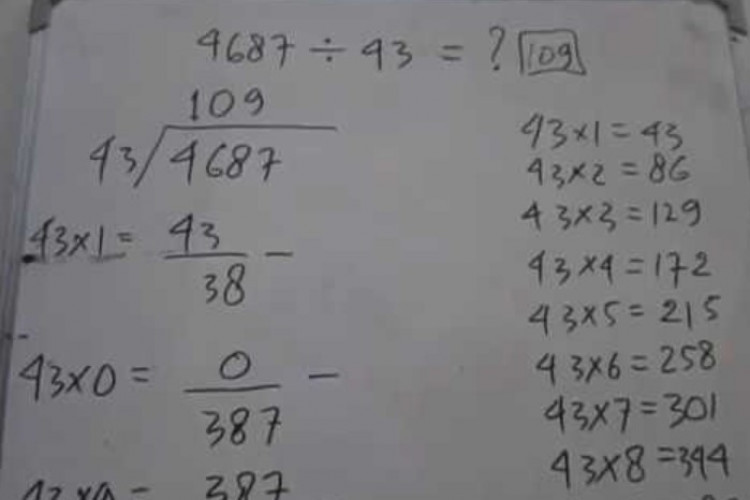 4687 ÷ 43 = ? 109
109
43 / 4687
43x1 = 43
38 -
43x0 = 0
387 -
43x9 = 387
43x1 = 43
43x2 = 86
43x3 = 129
43x4 = 172
43x5 = 215
43x6 = 258
43x7 = 301
43x8 = 344